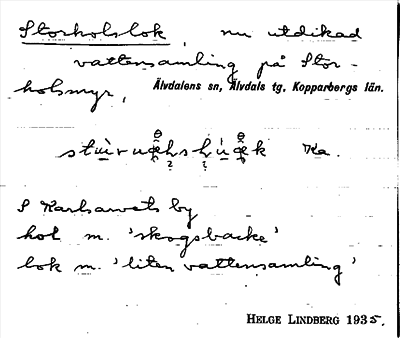 Storholslok, nu utdikad
vattensamling på Stor-
holsmyr,
Älvdalens sn, Älvdals tg. Kopparbergs län.
Ka.
S Karlsarvets by
hol m. 'skogsbacke'
lok m. 'liten vattensamling'
HELGE LINDBERG 1935.